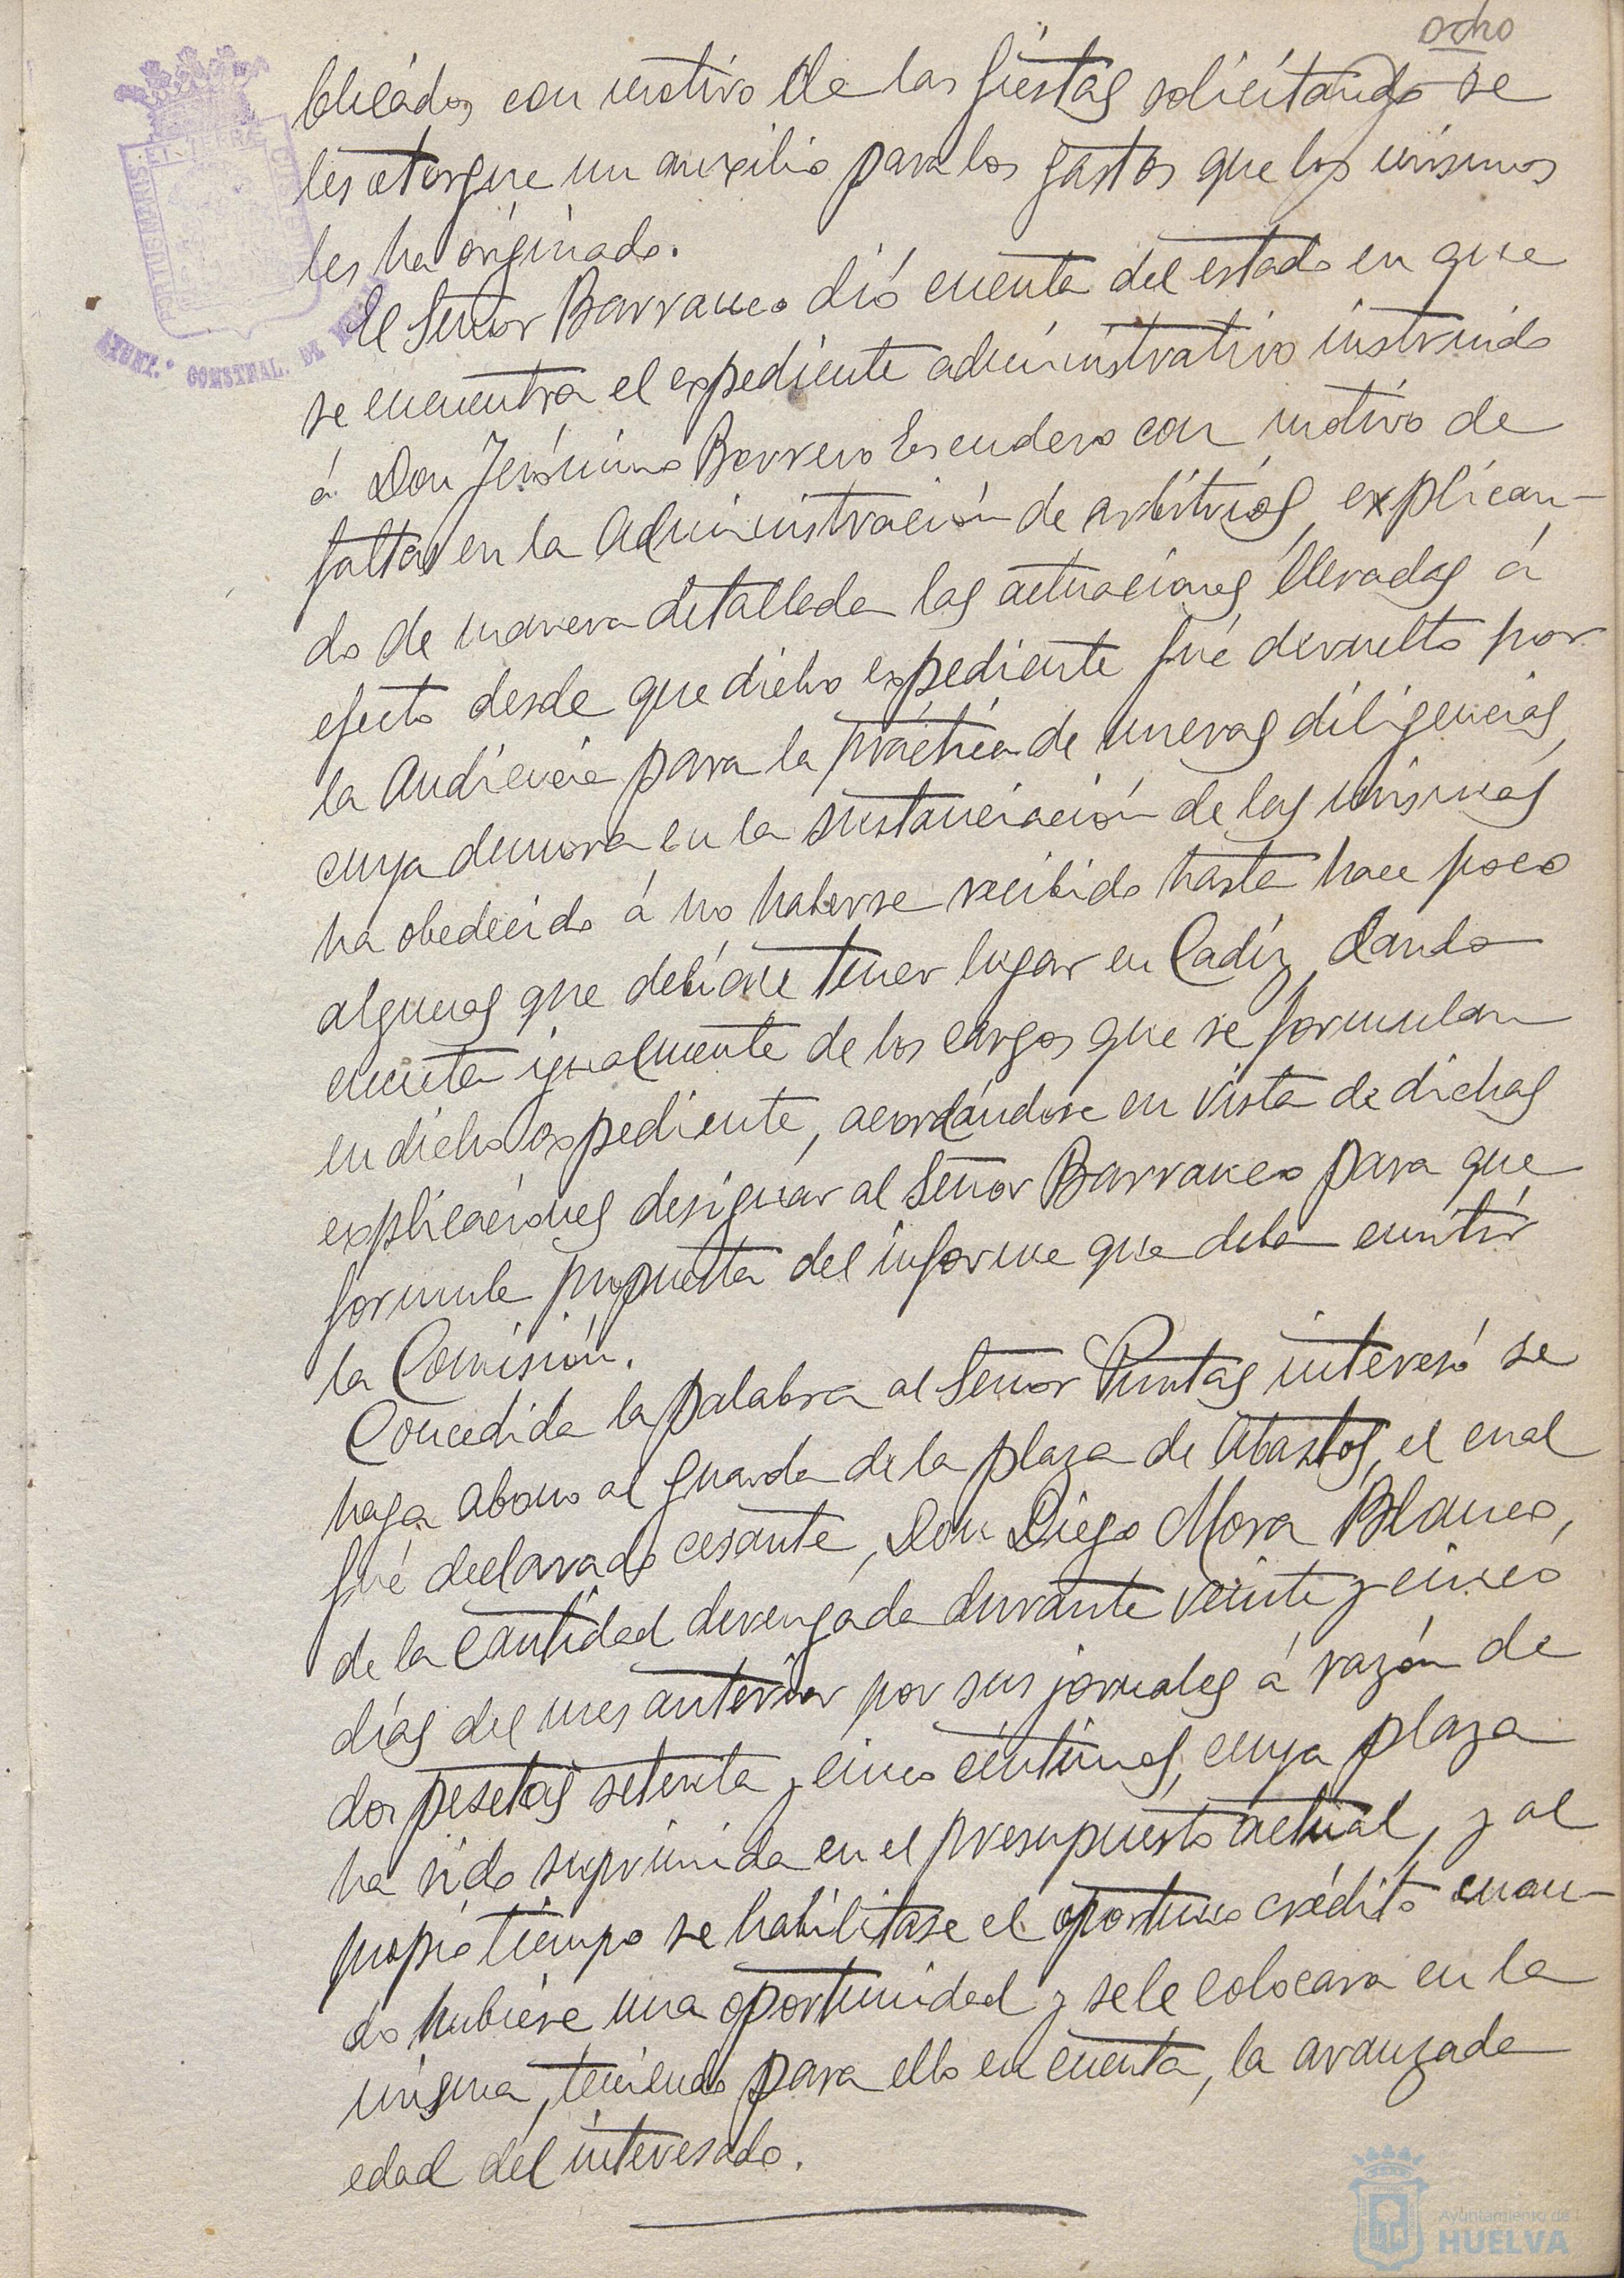 ocho
blicados con motivo de las fiestas solicitando se
les otorgue un auxilio para los gastos que los mismos
les ha originado.
El Señor Barranco dió cuenta del estado en que
se encuentra el expediente administrativo instruido
á Don Jerónimo Borrero Escudero con motivo de
faltas en la Administración de arbitrios, explican-
do de manera detallada las actuaciones llevadas á
efecto desde que dicho expediente fué devuelto por
la Audiencia para la práctica de nuevas diligencias,
cuya demora en la sustanciación de las mismas
ha obedecido á no haberse recibido hasta hace poco
algunas que debían tener lugar en Cadiz, dando
cuenta igualmente de los cargos que se formulan
en dicho expediente, acordándose en vista de dichas
explicaciones designar al Señor Barranco para que
formule propuesta del informe que deba emitir
la Comisión.
Concedida la palabra al Señor Puntas interesó se
haga abono al guarda de la plaza de Abastos, el cual
fué declarado cesante, Don Diego Mora Blanco,
de la cantidad devengada durante veinte y cinco
días del mes anterior por sus jornales á razón de
dos pesetas setenta y cinco céntimos, cuya plaza
ha sido suprimida en el presupuesto actual, y al
propio tiempo se habilitase el oportuno crédito cuan-
do hubiere una oportunidad y se le colocara en la
misma, teniendo para ello en cuenta, la avanzada
edad del interesado.
AYUNT.º CONSTNAL. DE
Ayuntamiento de
HUELVA